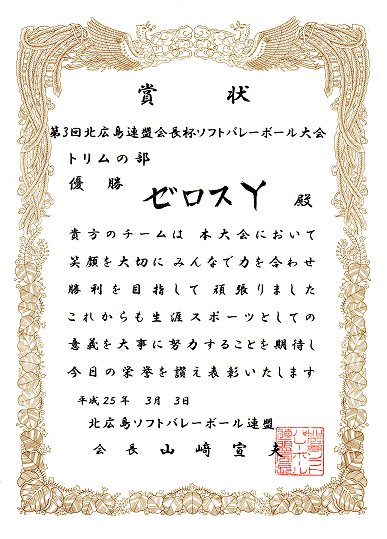 賞状
第3回北広島連盟会長杯ソフトバレーボール大会
トリムの部
優勝
ゼロスY 殿
貴方のチームは 本大会において
笑顔を大切に みんなで力を合わせ
勝利を目指して 頑張りました
これからも生涯スポーツとしての
意義を大事に努力することを期待し
今日の栄誉を讃え表彰いたします
平成25年 3月 3日
北広島ソフトバレーボール連盟
会長 山﨑宣夫